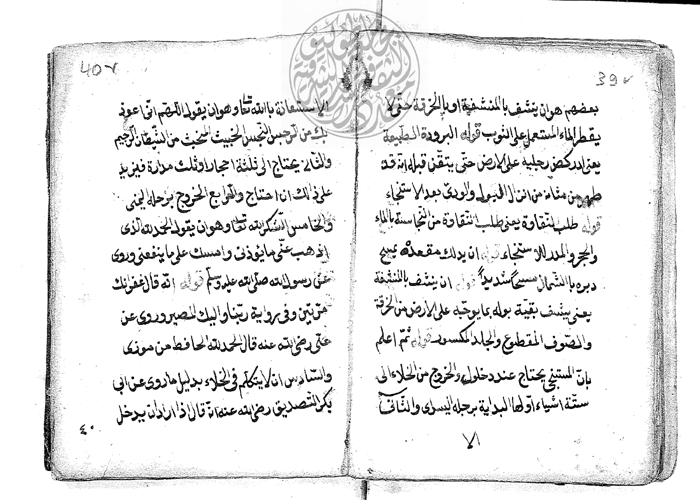 39
بعضهم هو ان ينشف بالمنشفة او بالخرقة حتى لا
يقطر الماء المستعمل على الثوب قوله البرودة الطبيعة
يعنى ان ركض رجليه على الارض حتى يتقن قبله انه قد
طهر من انزال البول والودى بعد الاستنجاء
قوله طلب النقاوة يعنى طلب النقاوة من النجاسة بالماء
والحجر والمدر للاستنجاء قوله ان يدلك مقعده يمسح
دبره بالشمال مسحا شديدا قوله ان ينشف بالمنشفة
يعنى ينشف بقية بوله بما يوجبه على الارض من الخرقة
والصوف المقطوع والجلد المكسور قوله ثم اعلم
بان المستنجى يحتاج عند دخول والخروج من الخلاء الى
ستة اشياء اولها البداية برجله اليسرى والثانى
الا
40
الاستعاذة بالله تعا وهو ان يقول اللهم انى اعوذ
بك من الرجس النجس الخبيث المخبث من الشيطان الرجيم
والثالث يحتاج الى ثلثة احجار او ثلث مدارة فيزيد
على ذلك ان احتاج والرابع الخروج برجله اليمنى
والخامس الشكر لله تعا وهو ان يقول الحمد لله الذى
اذهب عنى ما يوذنى وامسك على ما ينفعنى وروى
عن رسول الله صلى الله عليه وسلم قوله انه قال غفرانك
مرتين وفى رواية ربنا واليك المصير وروى عن
على رضى الله عنه قال الحمد لله الحافظ من موذى
والسادس ان لا يتكلم فى الخلاء بدليل ما روى عن ابى
بكر الصديق رضى الله عنه انه قال اذا اراد ان يدخل
٤٠